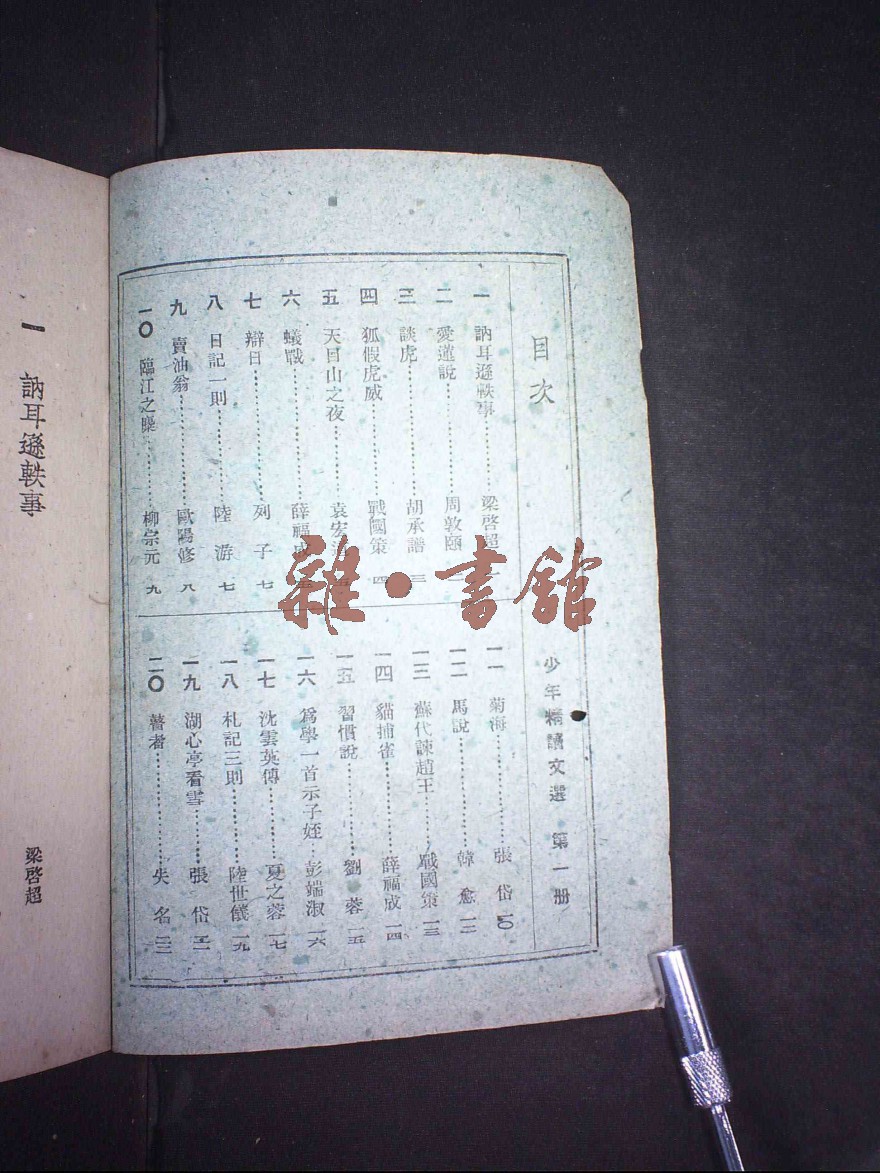 目次
少年精讀文選 第一册
一 訥耳遜軼事……梁啓超
二 愛蓮說……周敦頤
三 談虎……胡承譜 三
四 狐假虎威……戰國策 四
五 天目山之夜……袁宏
六 蟻戰……薛福成
七 辯日……列子 七
八 日記一則……陸游 七
九 賣油翁……歐陽修 八
一〇 臨江之麋……柳宗元 九
一一 菊海……張岱 一〇
一二 馬說……韓愈 一二
一三 蘇代諫趙王……戰國策 一三
一四 貓捕雀……薛福成 一四
一五 習慣說……劉蓉 一五
一六 爲學一首示子姪……彭端淑 一六
一七 沈雲英傳……夏之蓉 一七
一八 札記三則……陸世儀 一九
一九 湖心亭看雪……張岱 二一
二〇 瞽者……失名
一 訥耳遜軼事
梁啓超
雜·書館